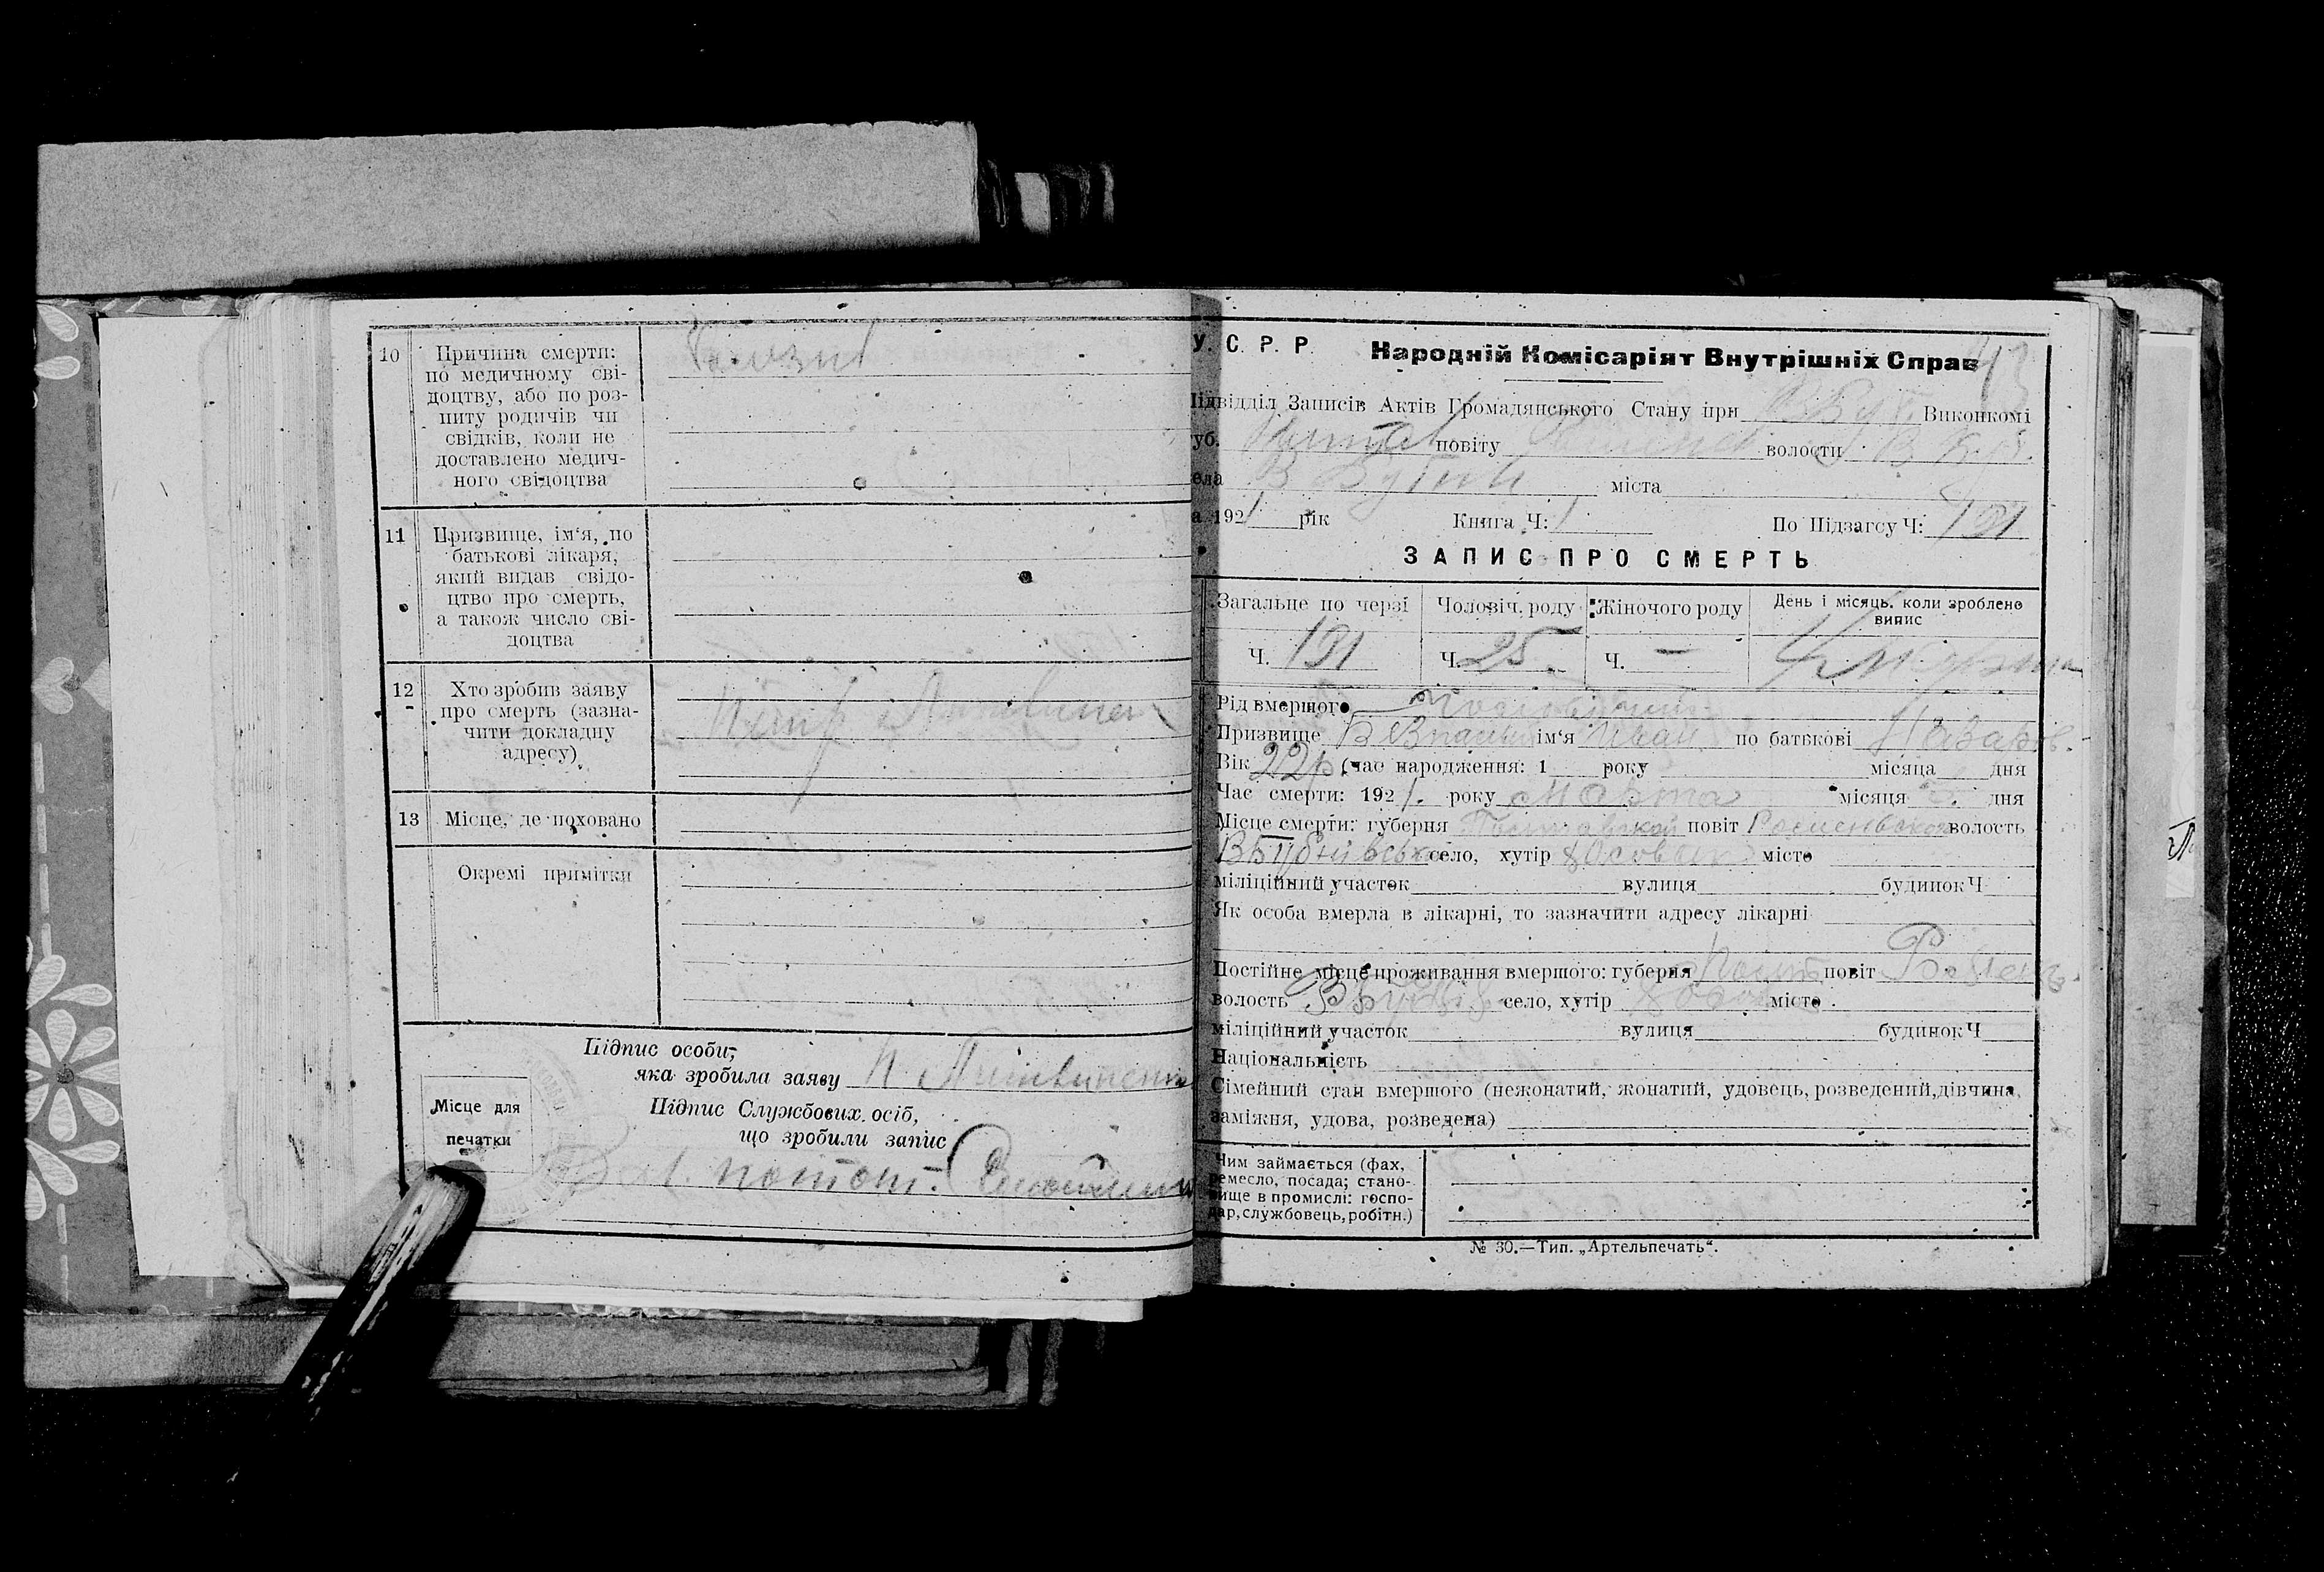 10 Причина смерти:
по медичному сві-
доцтву, або по роз-
питу родичів чи
свідків, коли не
доставлено медич-
ного свідоцтва
11 Призвище, ім'я, по
батькові лікаря,
який видав свідо-
цтво про смерть,
а також число сві-
доцтва
12 Хто зробив заяву
про смерть (зазна-
чити докладну
адресу)
13 Місце, де поховано
Окремі примітки
Підпис особи,
яка зробила заяву
Підпис Службових осіб,
що зробили запис
Місце для
печатки
У. С. Р. Р. Народній Комісаріят Внутрішніх Справ
43
Підвідділ Записів Актів Громадянського Стану при Виконкомі
губ. повіту волости
села міста
а 1921 рік Книга Ч: 1 По Підзагсу Ч: 191
ЗАПИС ПРО СМЕРТЬ
Загальне по черзі Чоловіч. роду Жіночого роду День і місяць, коли зроблено
випис
Ч. 191 Ч. 25 Ч. — 4 марта
Рід вмершого
Призвище ім'я Иван по батькові Назаров.
Вік 22 р. (час народження: 1 року місяця дня
Час смерти: 1921. року марта місяця дня
Місце смерти: губерня Полтавской повіт волость
село, хутір місто
міліційний участок вулиця будинок Ч
Як особа вмерла в лікарні, то зазначити адресу лікарні
Постійне місце проживання вмершого: губерня Полт повіт
волость село, хутір місто
міліційний участок вулиця будинок Ч
Національність
Сімейний стан вмершого (нежонатий, жонатий, удовець, розведений, дівчина,
заміжня, удова, розведена)
Чим займається (фах,
ремесло, посада; стано-
вище в промислі: госпо-
дар, службовець, робітн.)
№ 30.—Тип. „Артельпечать“.